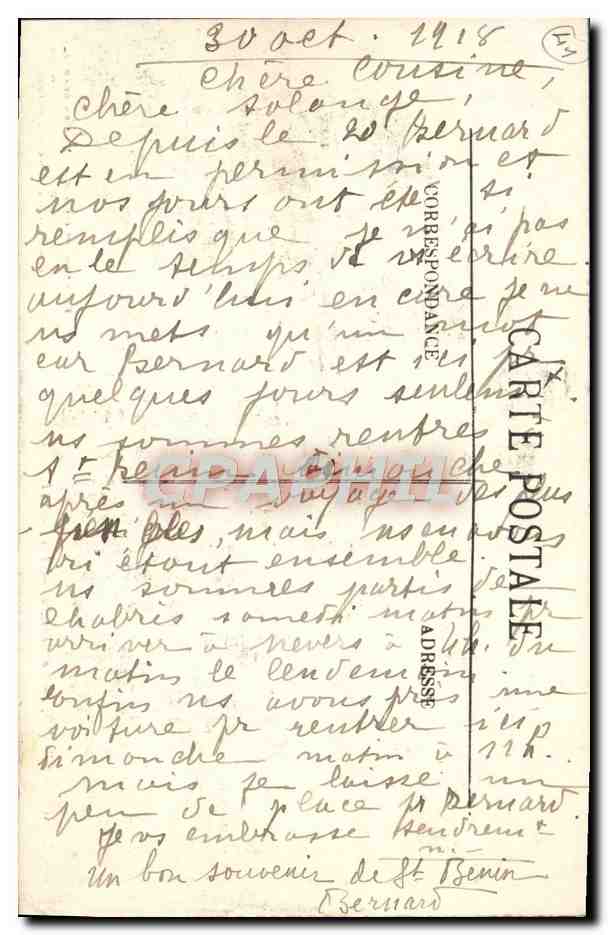 30 oct. 1918
Chère Cousine,
Chère Solange,
Depuis le 20 Bernard
est en permission et
nos jours ont été si
remplis que je n'ai pas
eu le temps de vs écrire
aujourd'hui encore je ne
vs mets qu'un mot
car Bernard est ici pr
quelques jours seulemt
ns sommes rentrés
à St Benin dimanche
après un voyage des plus
pénibles, mais ns en avons
ri étant ensemble.
ns sommes partis de
Chabris samedi matin pr
arriver à Nevers à 4h. du
matin le lendemain
enfin ns avons pris une
voiture pr rentrer ici
dimanche matin à 11h.
Mais je laisse un
peu de place pr Bernard.
Je vs embrasse tendremt
Un bon souvenir de St Benin
Bernard
CARTE POSTALE
CORRESPONDANCE
ADRESSE
CPAPHIL